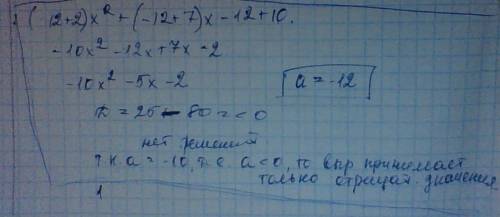 (-12+2)x² + (-12+7)x - 12+10.
-10x² - 12x + 7x - 2
-10x² - 5x - 2
a = -12
D = 25 - 80 = < 0
нет решений
т.к. a = -10, т.е. a < 0, то впр принимает
только отрицат. значения
1